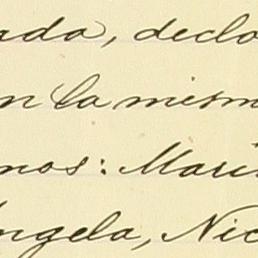 ada, decla
en la mism
mos: Marí
Angela, Nic